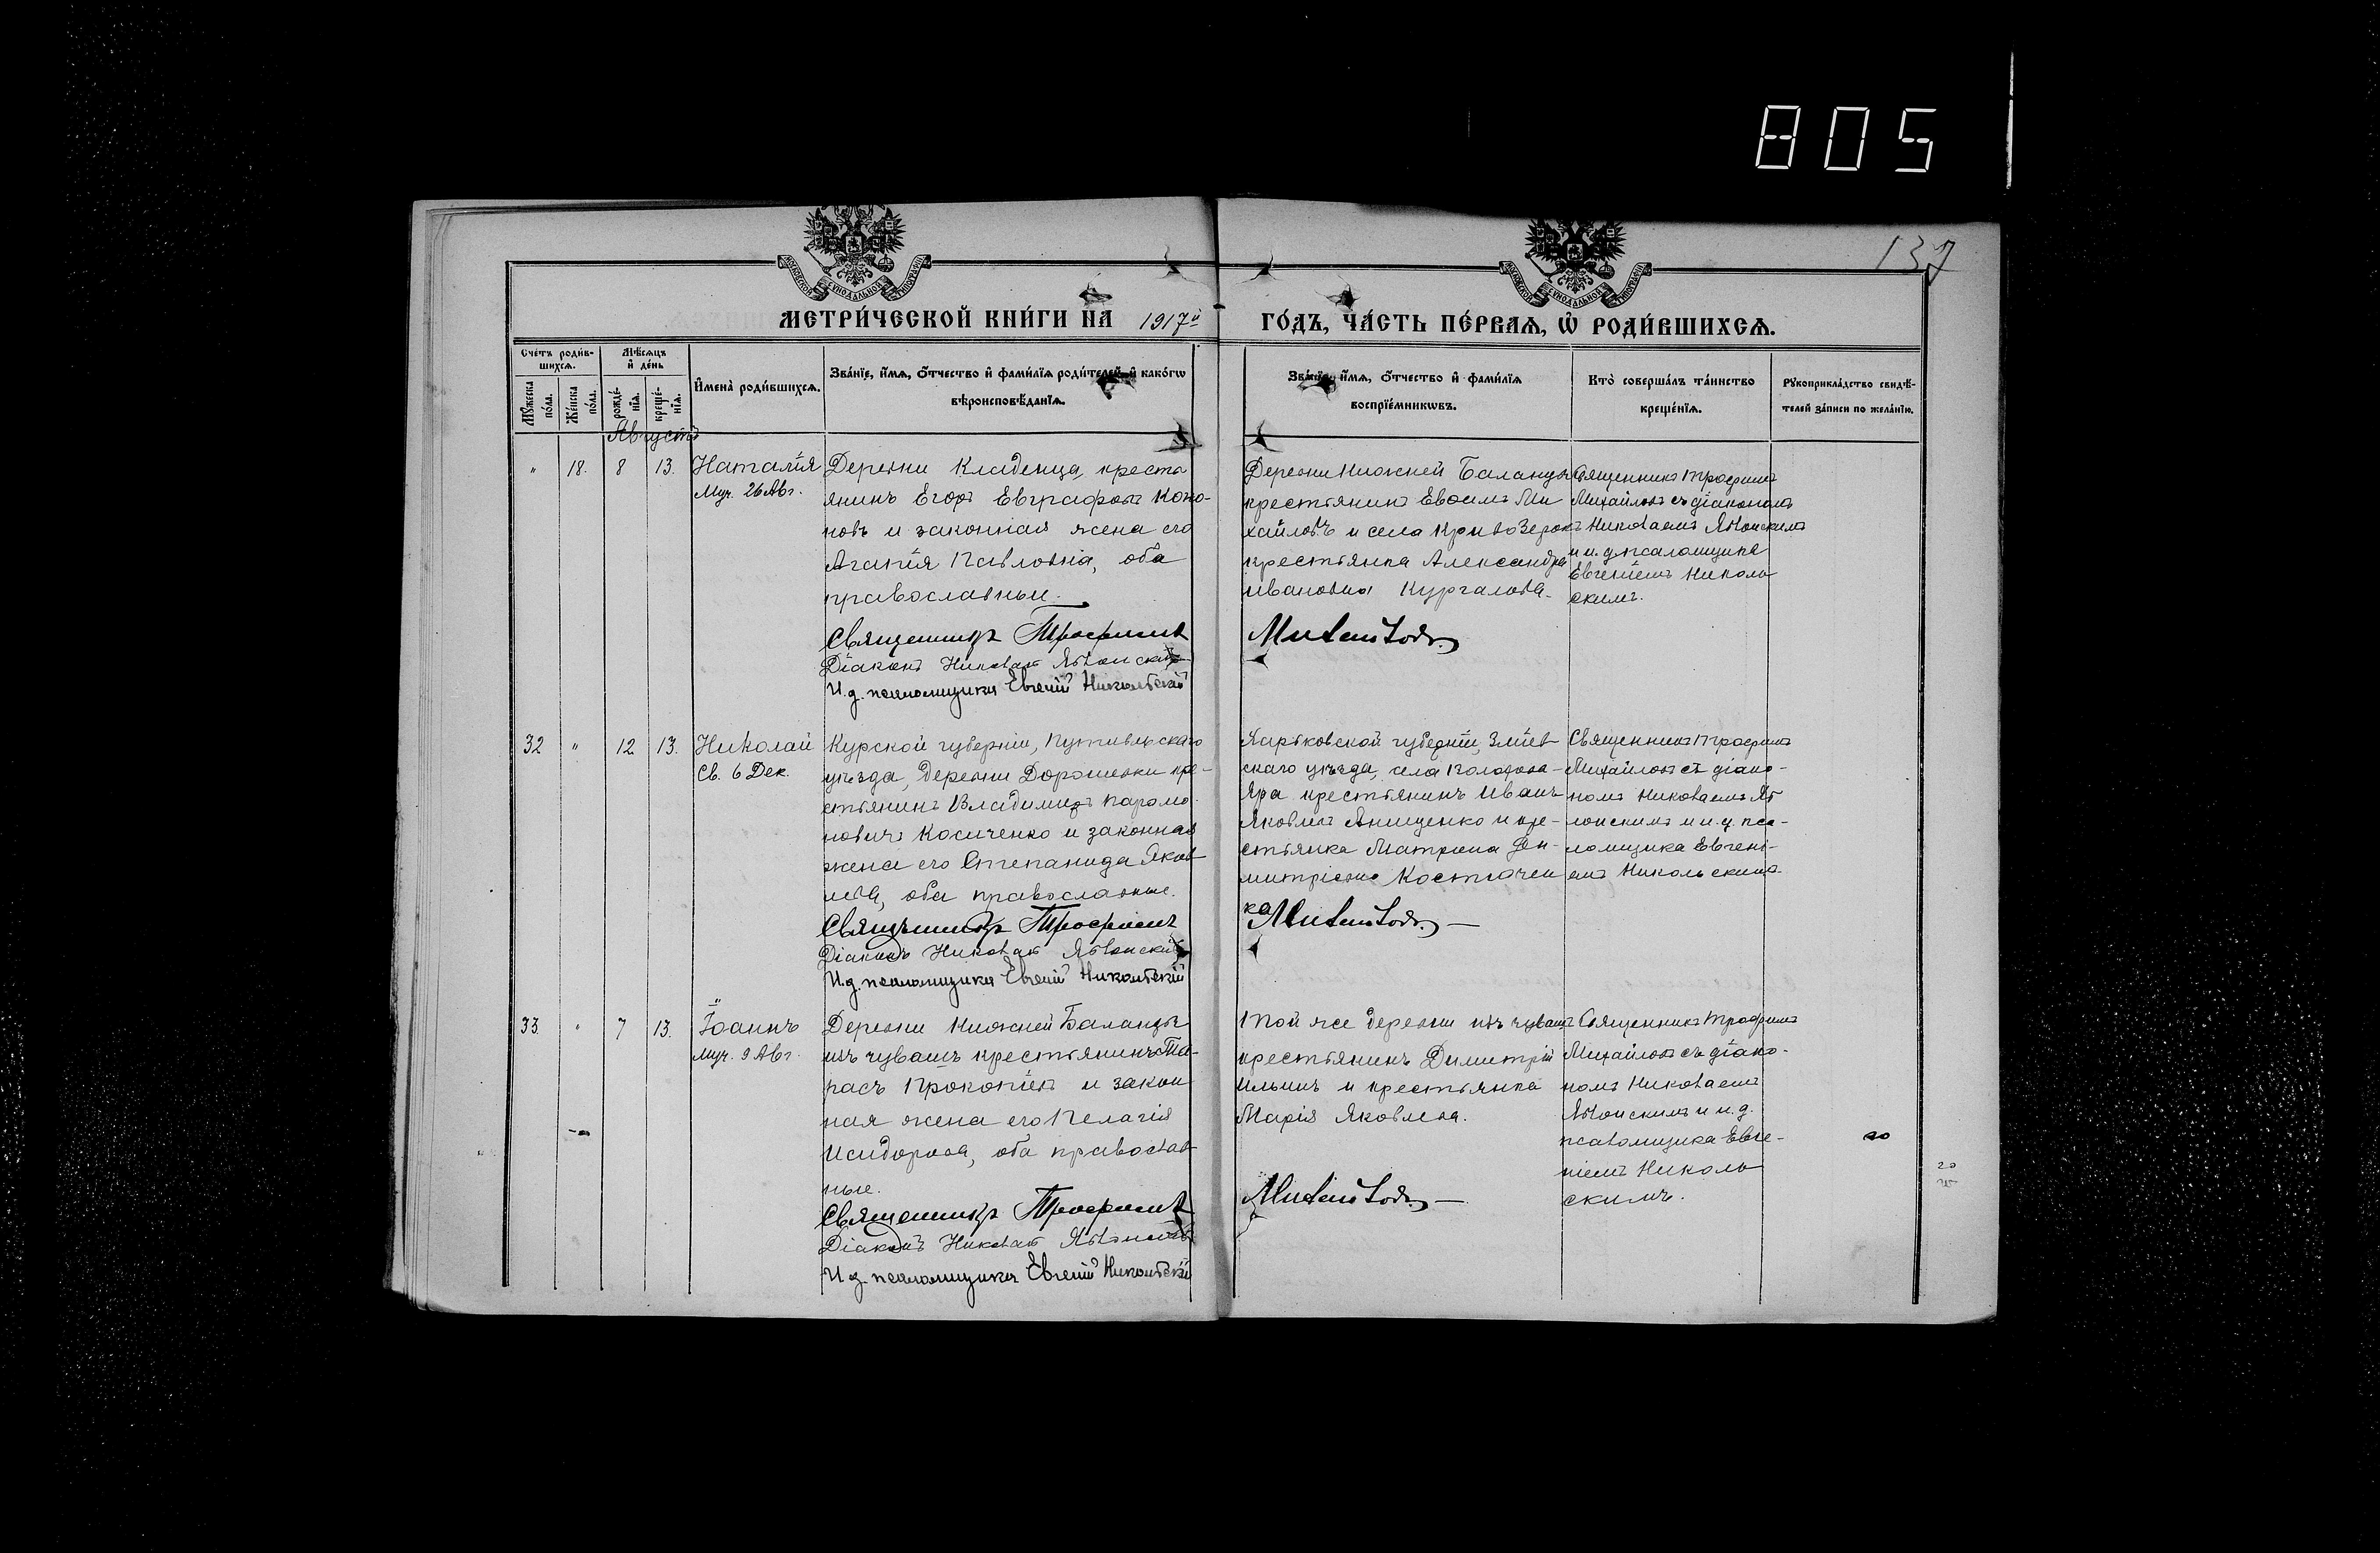 805
137
МЕТРИ́ЧЕСКОЙ КНИ́ГИ НА 1917й ГО́ДЪ, ЧА́СТЬ ПЕ́РВАѦ, Ѡ҆ РОДИ́ВШИХСѦ.
Сче́тъ роди́в-
шихсѧ.
Мѹ́жеска по́ла.
Же́нска по́ла.
Мѣ́сѧцъ и҆ де́нь
рожде́-нїѧ.
креще́-нїѧ.
И҆мена̀ роди́вшихсѧ.
Зва́нїе, и҆́мѧ, ѻ҆́тчество и҆ фами́лїѧ роди́телей, и҆ како́гѡ
вѣроисповѣ́данїѧ.
Зва́нїе, и҆́мѧ, ѻ҆́тчество и҆ фами́лїѧ
воспрїе́мникѡвъ.
Кто̀ соверша́лъ та́инство
креще́нїѧ.
Рѹкоприкла́дство свидѣ́-
телей за́писи по жела́нїю.
Августъ
" 18. 8 13.
Наталія
Муч. 26 Авг.
Деревни Кладенца, кресть
янинъ Егоръ Евграфовъ Коно-
новъ и законная жена его
Агапія Павловна, оба
православные.
Священникъ Трофимъ
Діаконъ Николай Яблонскій
И.д. псаломщика Евгеній Никольскій
Деревни Нижней Баланды
крестьянинъ Евѳимъ Ми
хайловъ и села КривоЗерок
крестьянка Александра
Ивановна Кургалова.
Михайловъ.
Священникъ Трофимъ
Михайловъ съ діакономъ
Николаемъ Яблонскимъ
и и. д. псаломщика
Евгеніемъ Николь
скимъ.
32 " 12 13.
Николай
Св. 6 Дек.
Курской губерніи, Путивльскаго
уѣзда, деревни Дорошевки кре-
стьянинъ Владимиръ Парамо
новичъ Косиченко и законная
жена его Степанида Яков
лева, оба православные.
Священникъ Трофимъ
Діаконъ Николай Яблонскій
И.д. псаломщика Евгеній Никольскій
Харьковской губерніи, Зміев
скаго уѣзда, села
Яра крестьянинъ Иванъ
Яковлевъ Анищенко и кре-
стьянка Матрона Ди-
митріевна Костючен
ка Михайловъ. —
Священникъ Трофимъ
Михайловъ съ діако-
номъ Николаемъ Яб
лонскимъ и и. д. пса-
ломщика Евгені-
емъ Никольскимъ.
33 " 7 13.
Іоаннъ
муч. 9 Авг.
Деревни Нижней Баланды
изъ чувашъ крестьянинъ Та-
расъ Прокопіевъ и закон
ная жена его Пелагія
Исидорова, оба православ
ные.
Священникъ Трофимъ
Діаконъ Николай Яблонскій
И.д. псаломщика Евгеній Никольскій
Той же деревни изъ чувашъ
крестьянинъ Димитрій
Ильинъ и крестьянка
Марія Яковлева.
Михайловъ. —
Священникъ Трофимъ
Михайловъ съ діако-
номъ Николаемъ
Яблонскимъ и и. д.
псаломщика Евге-
ніемъ Николь
скимъ.